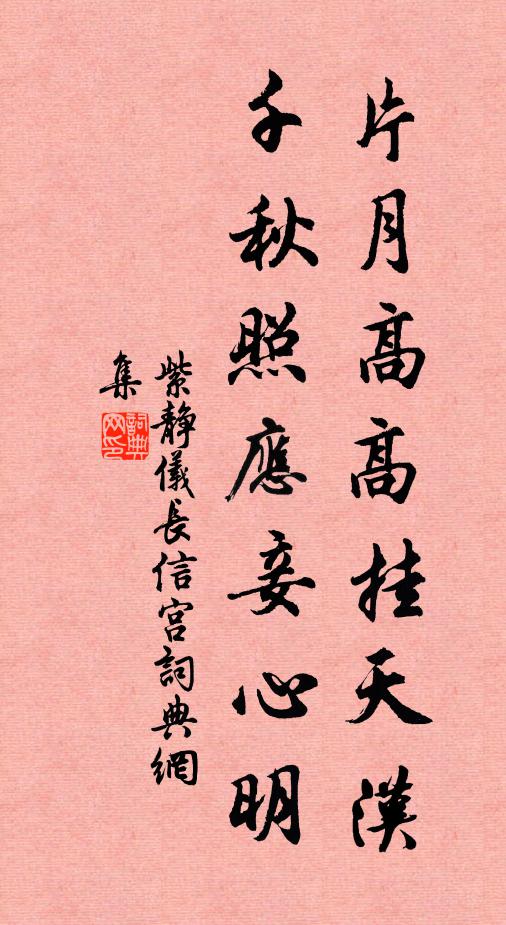 片月高高挂天漢
千秋照應妾心明
紫静儀長信宮詞典網
集
詞典網印